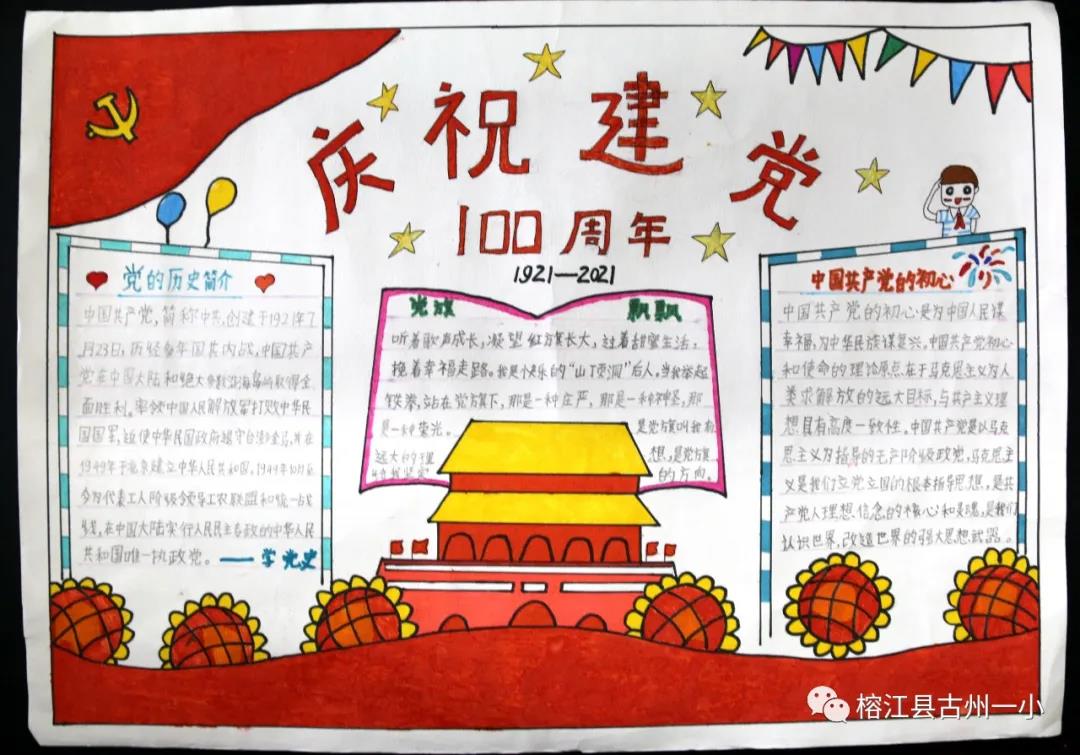 庆祝建党
100周年
1921—2021
党的历史简介
中国共产党,简称中共,创建于1921年7
月23日,历经多年国共内战,中国共产
党在中国大陆和绝大多数沿海岛屿取得全
面胜利。率领中国人民解放军打败中华民
国国军,迫使中华民国政府退守台澎金马,并在
1949年于北京建立中华人民共和国,1949年10月至
今为代表工人阶级领导工农联盟和统一战
线,在中国大陆实行人民民主专政的中华人民
共和国唯一执政党。——学党史
党旗 飘飘
听着歌声成长,凝望红旗长大,过着甜蜜生活,
挽着幸福走路。我是个快乐的“山丁洞”后人。当我举起
铁拳,站在党旗下,那是一种庄严,那是一种神圣,那
是一种荣光。
是党旗叫我有
远大的理
想,是党旗
的方向。
中国共产党的初心
中国共产党的初心是为中国人民谋
幸福,为中华民族谋复兴,中国共产党初心
和使命的理论原点在于马克思主义为人
类求解放的远大目标,与共产主义理
想具有高度一致性。中国共产党是以马克
思主义为指导的无产阶级政党,马克思主
义是我们立党立国的根本指导思想,是共
产党人理想信念的核心和灵魂,是我们
认识世界,改造世界的强大思想武器。
榕江县古州一小